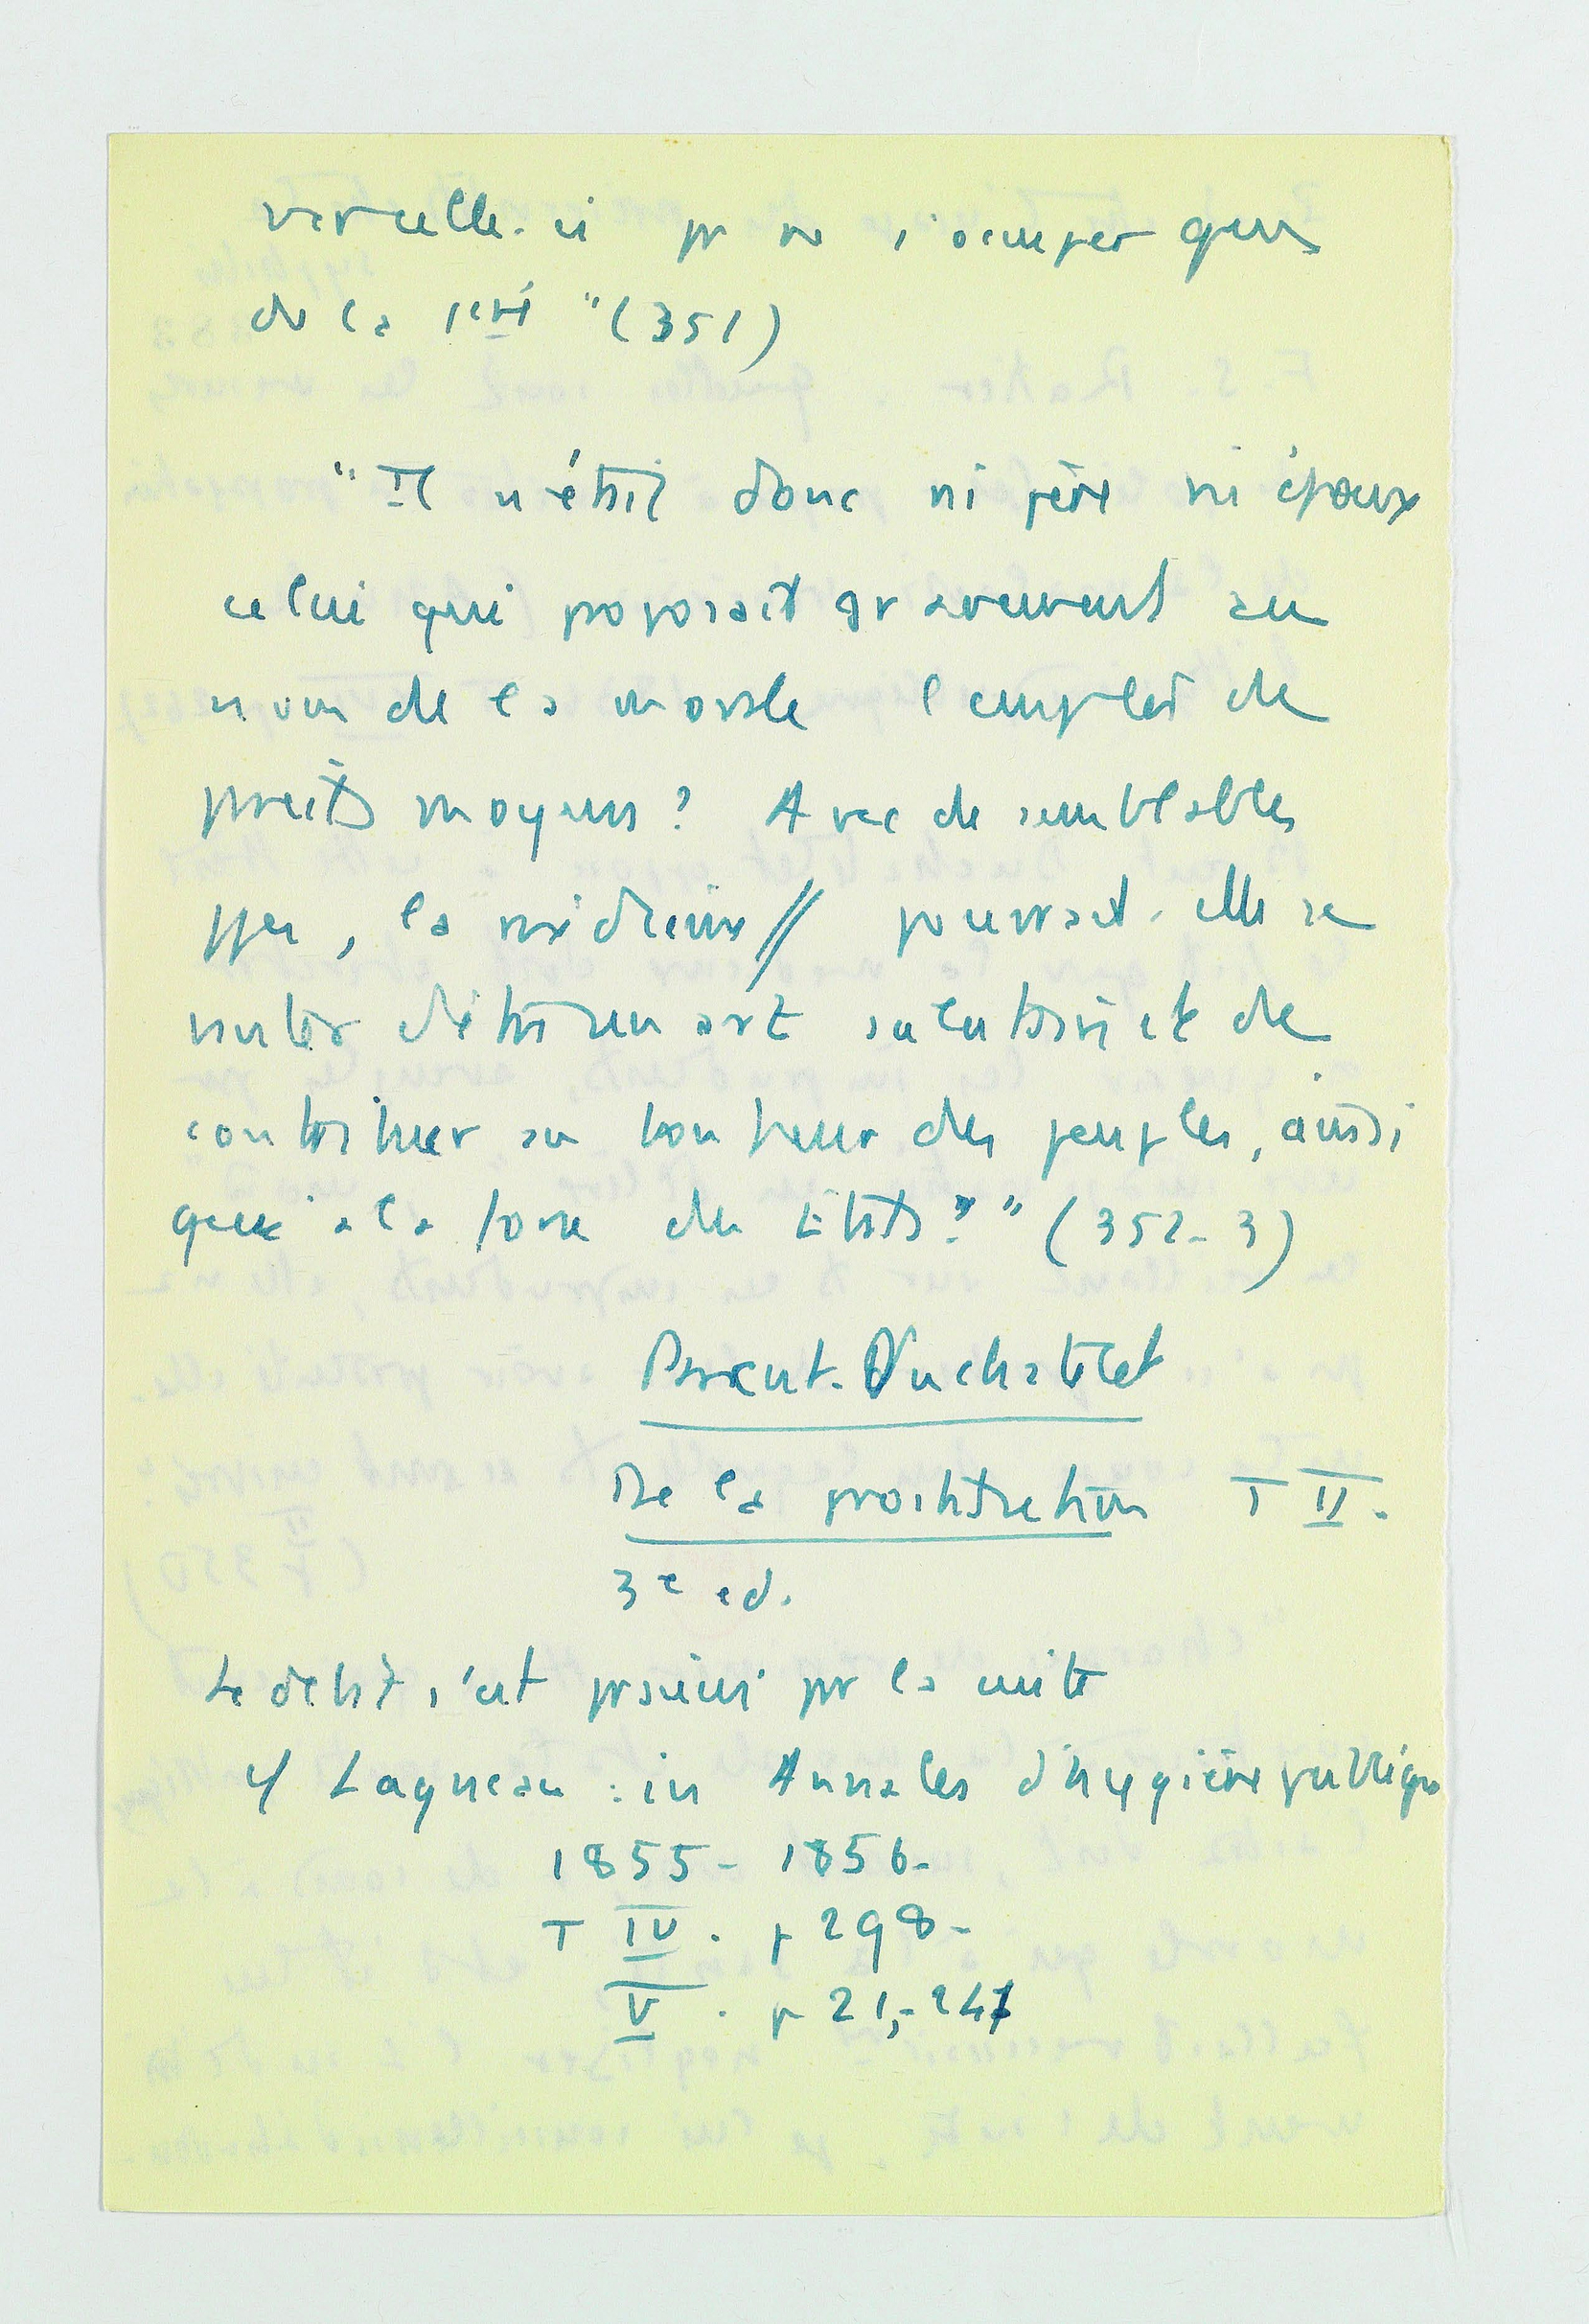 celle-ci pr ne s'occuper que
de la 1ère" (351)
"Il n'était donc ni père ni époux
celui qui proposait gravement au
nom de la morale l'emploi de
pareils moyens ? Avec de semblables
ppes, la médecine // pourrait-elle se
vanter d'être un art salutaire et de
contribuer au bonheur des peuples, ainsi
qu'à la force des Etats ?" (352-3)
Parent-Duchatelet
De la prostitution T II.
3e ed.
Le débat s'est poursuivi par la suite
cf Lagneau : in Annales d'hygiène publique
1855 - 1856-
T IV . p 298-
V . p 21,-247